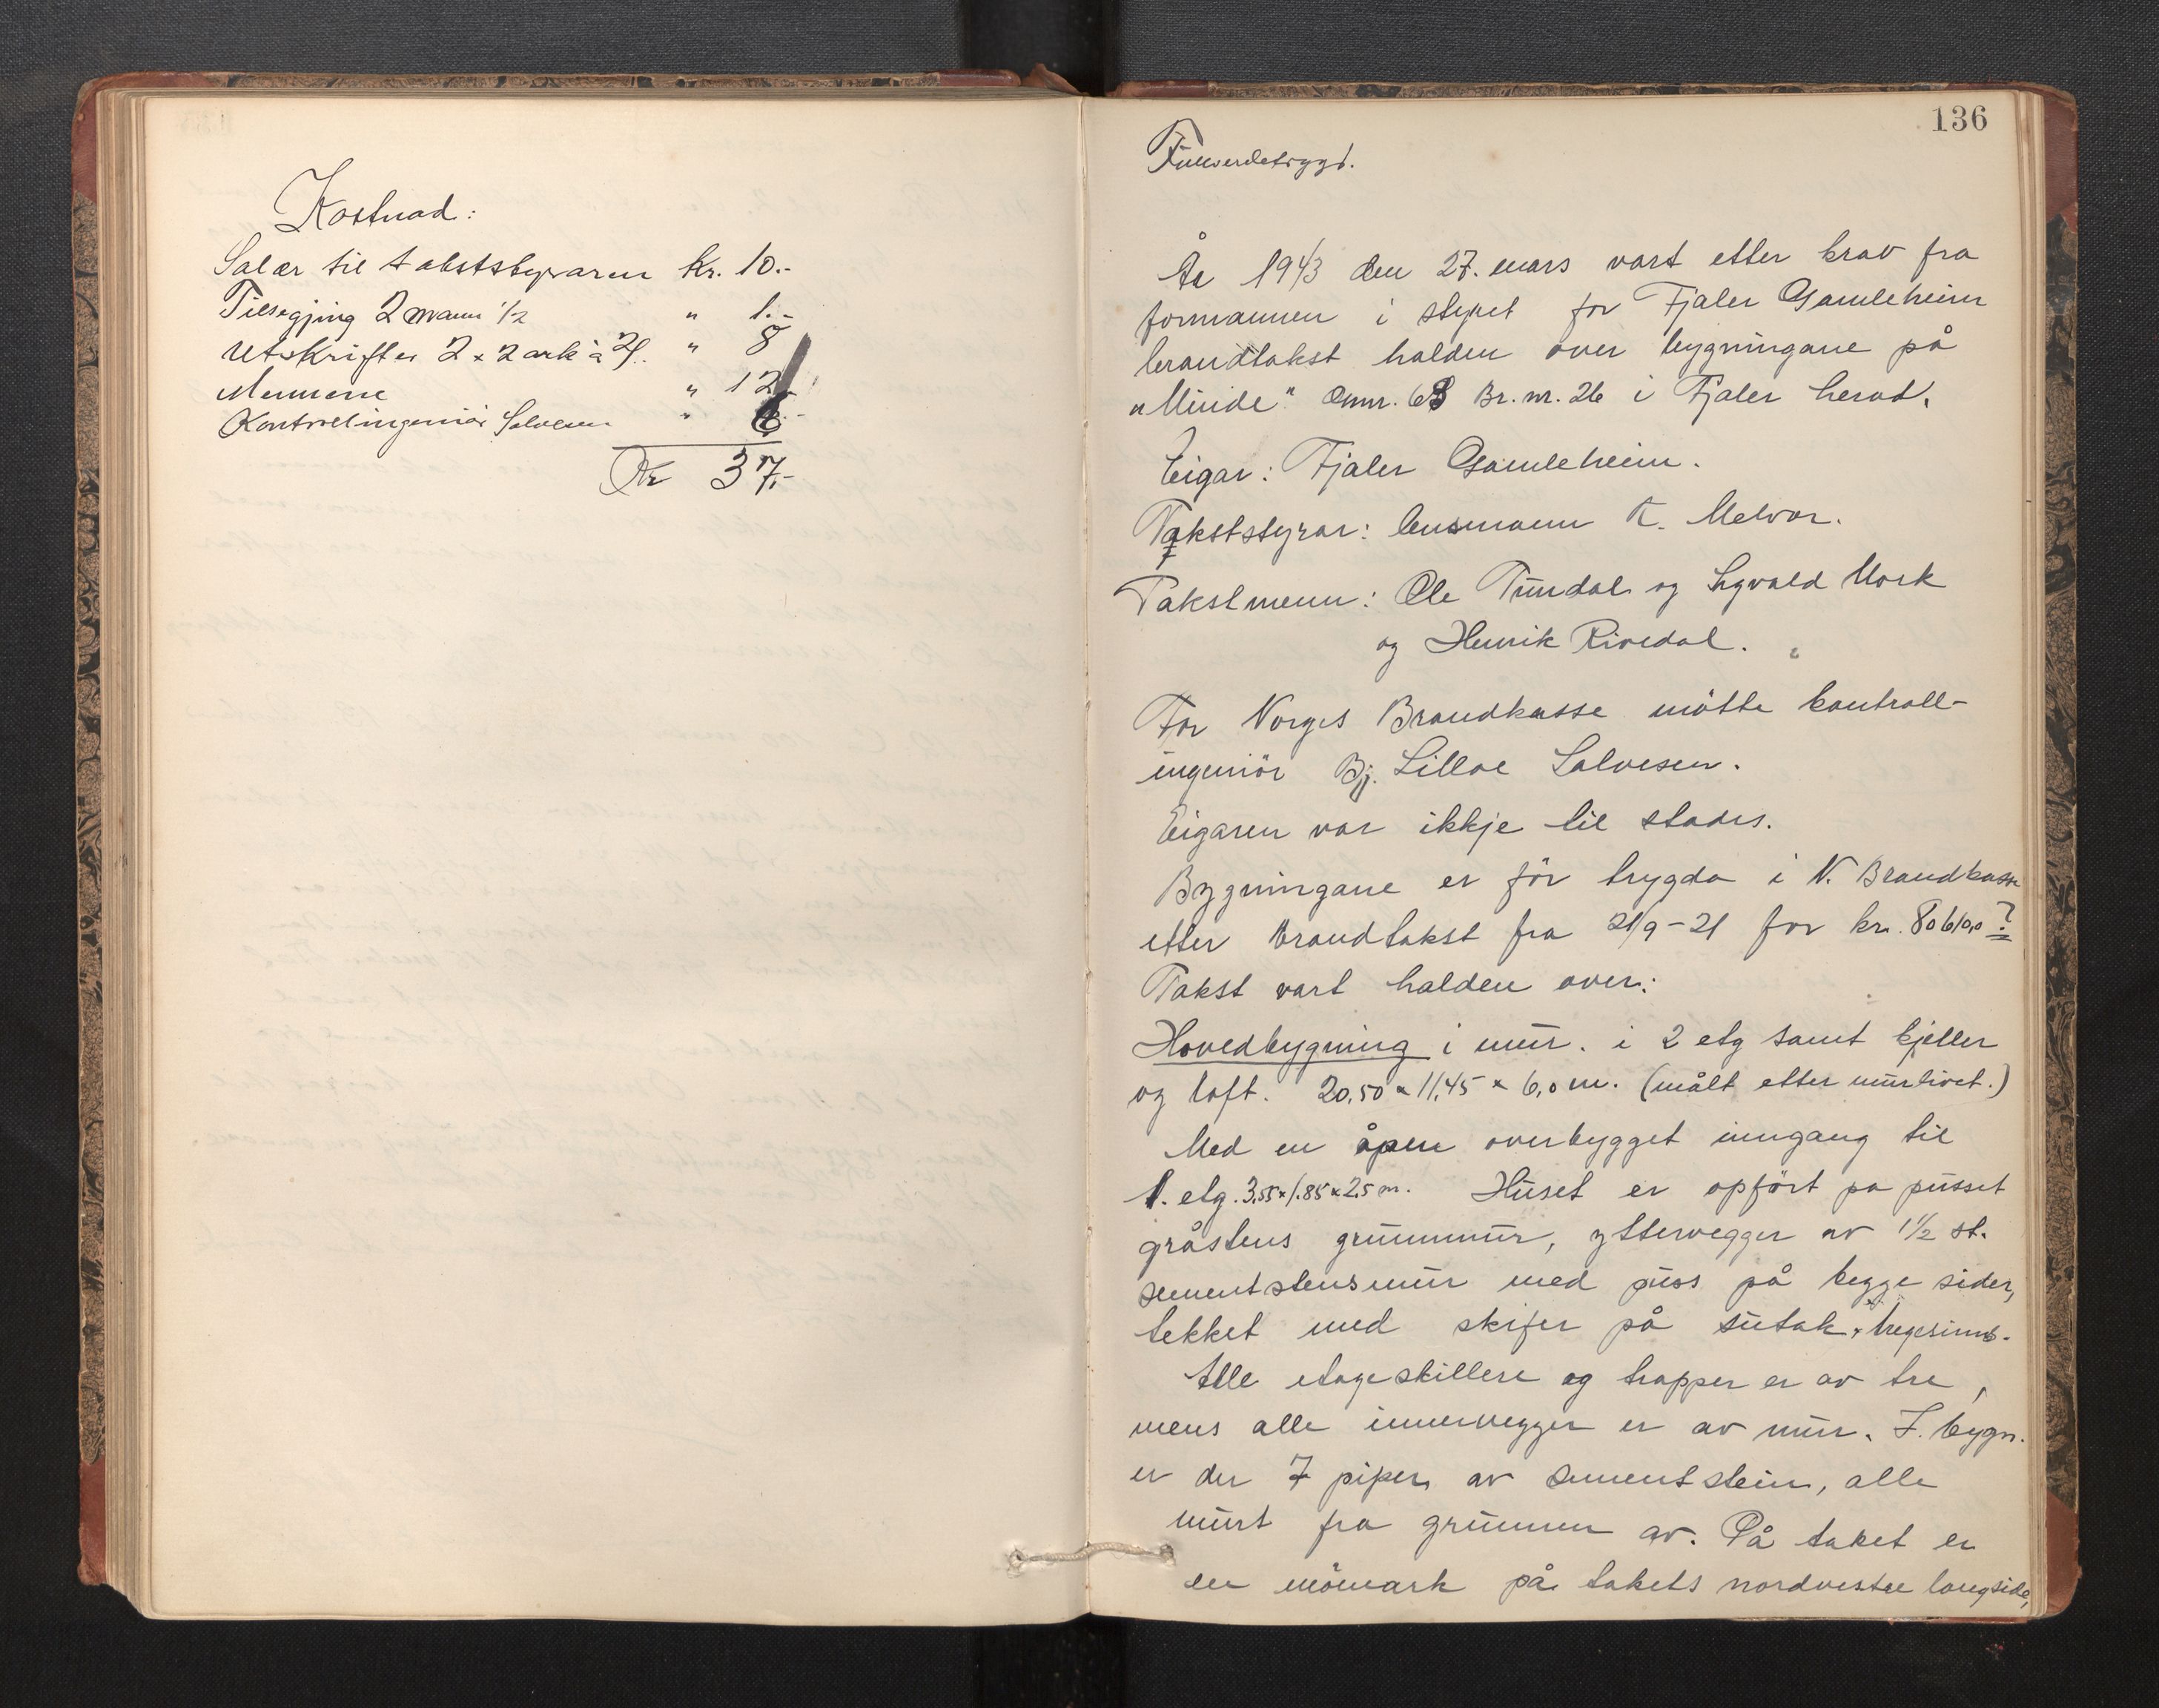 Kostnad:
Salær til takststyraren kr. 10.-
Tilsegjing 2 mann ½ " 1.-
Utskrifter 2 x 2 ark à 2/.. " 8
Mennene " 12.-
Kontrollingeniør Salvesen " 6.-
Kr 37.-
136
Fullverdetrygd.
År 1943 den 27. mars vart etter krav fra
formannen i styret for Fjaler Gamleheim
brandtakst halden over bygningane på
"Minde" Gnr. 68 Br. nr. 26 i Fjaler herad.
Eigar: Fjaler Gamleheim.
Takststyrar: lensmann K. Melvær.
Takstmenn: Ole Tundal og Sigvald Mork
og Henrik Rivedal.
For Norges Brandkasse møtte kontroll-
ingeniör Bj. Lilloe Salvesen.
Eigaren var ikkje til stades.
Bygningane er för trygda i N. Brandkasse
etter brandtakst fra 21/9-21 for kr. 80610,0 ?
Takst vart halden over:
Hovedbygning i mur. i 2 etg samt kjeller
og loft. 20,50 x 11,45 x 6,0 m. (målt etter murlivet.)
Med en åpen overbygget inngang til
1. etg. 3,55 x 1.85 x 2,5 m. Huset er opfört på pusset
gråstens grunnmur, yttervegger av 1½ st.
sementstensmur med puss på begge sider,
tekket med skifer på sutak
Alle etageskillere og trapper er av tre,
mens alle innervegger er av mur. I. bygn.
er der 7 piper av sementstein, alle
murt fra grunnen av. På taket er
en möneark på takets nordvestre langside,